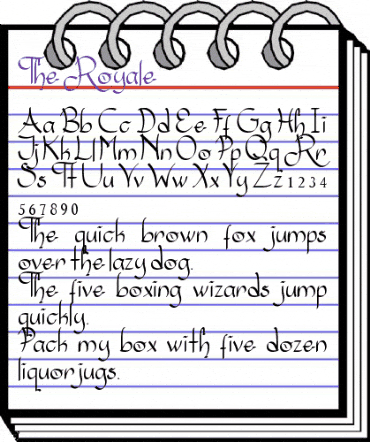 The Royale
Aa Bb Cc Dd Ee Ff Gg Hh Ii
Jj Kk Ll Mm Nn Oo Pp Qq Rr
Ss Tt Uu Vv Ww Xx Yy Zz 1 2 3 4
5 6 7 8 9 0
The quick brown fox jumps
over the lazy dog.
The five boxing wizards jump
quickly.
Pack my box with five dozen
liquor jugs.